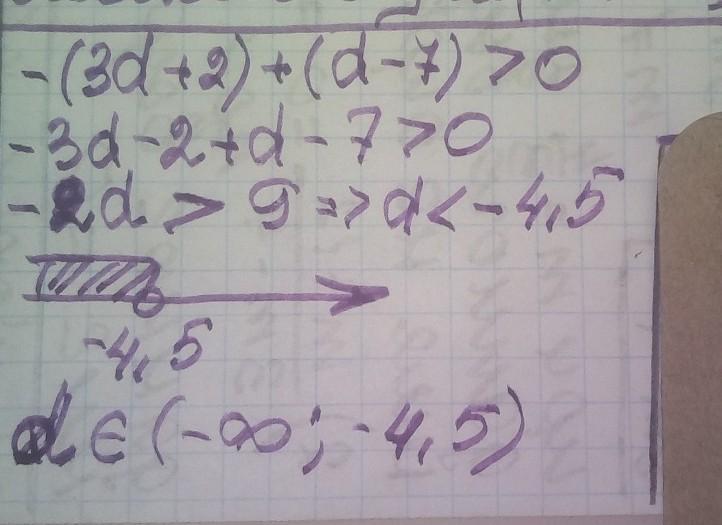 -(3d+2)+(d-7)>0
-3d-2+d-7>0
-2d>9=>d<-4,5
-4,5
d∈(-∞;-4,5)